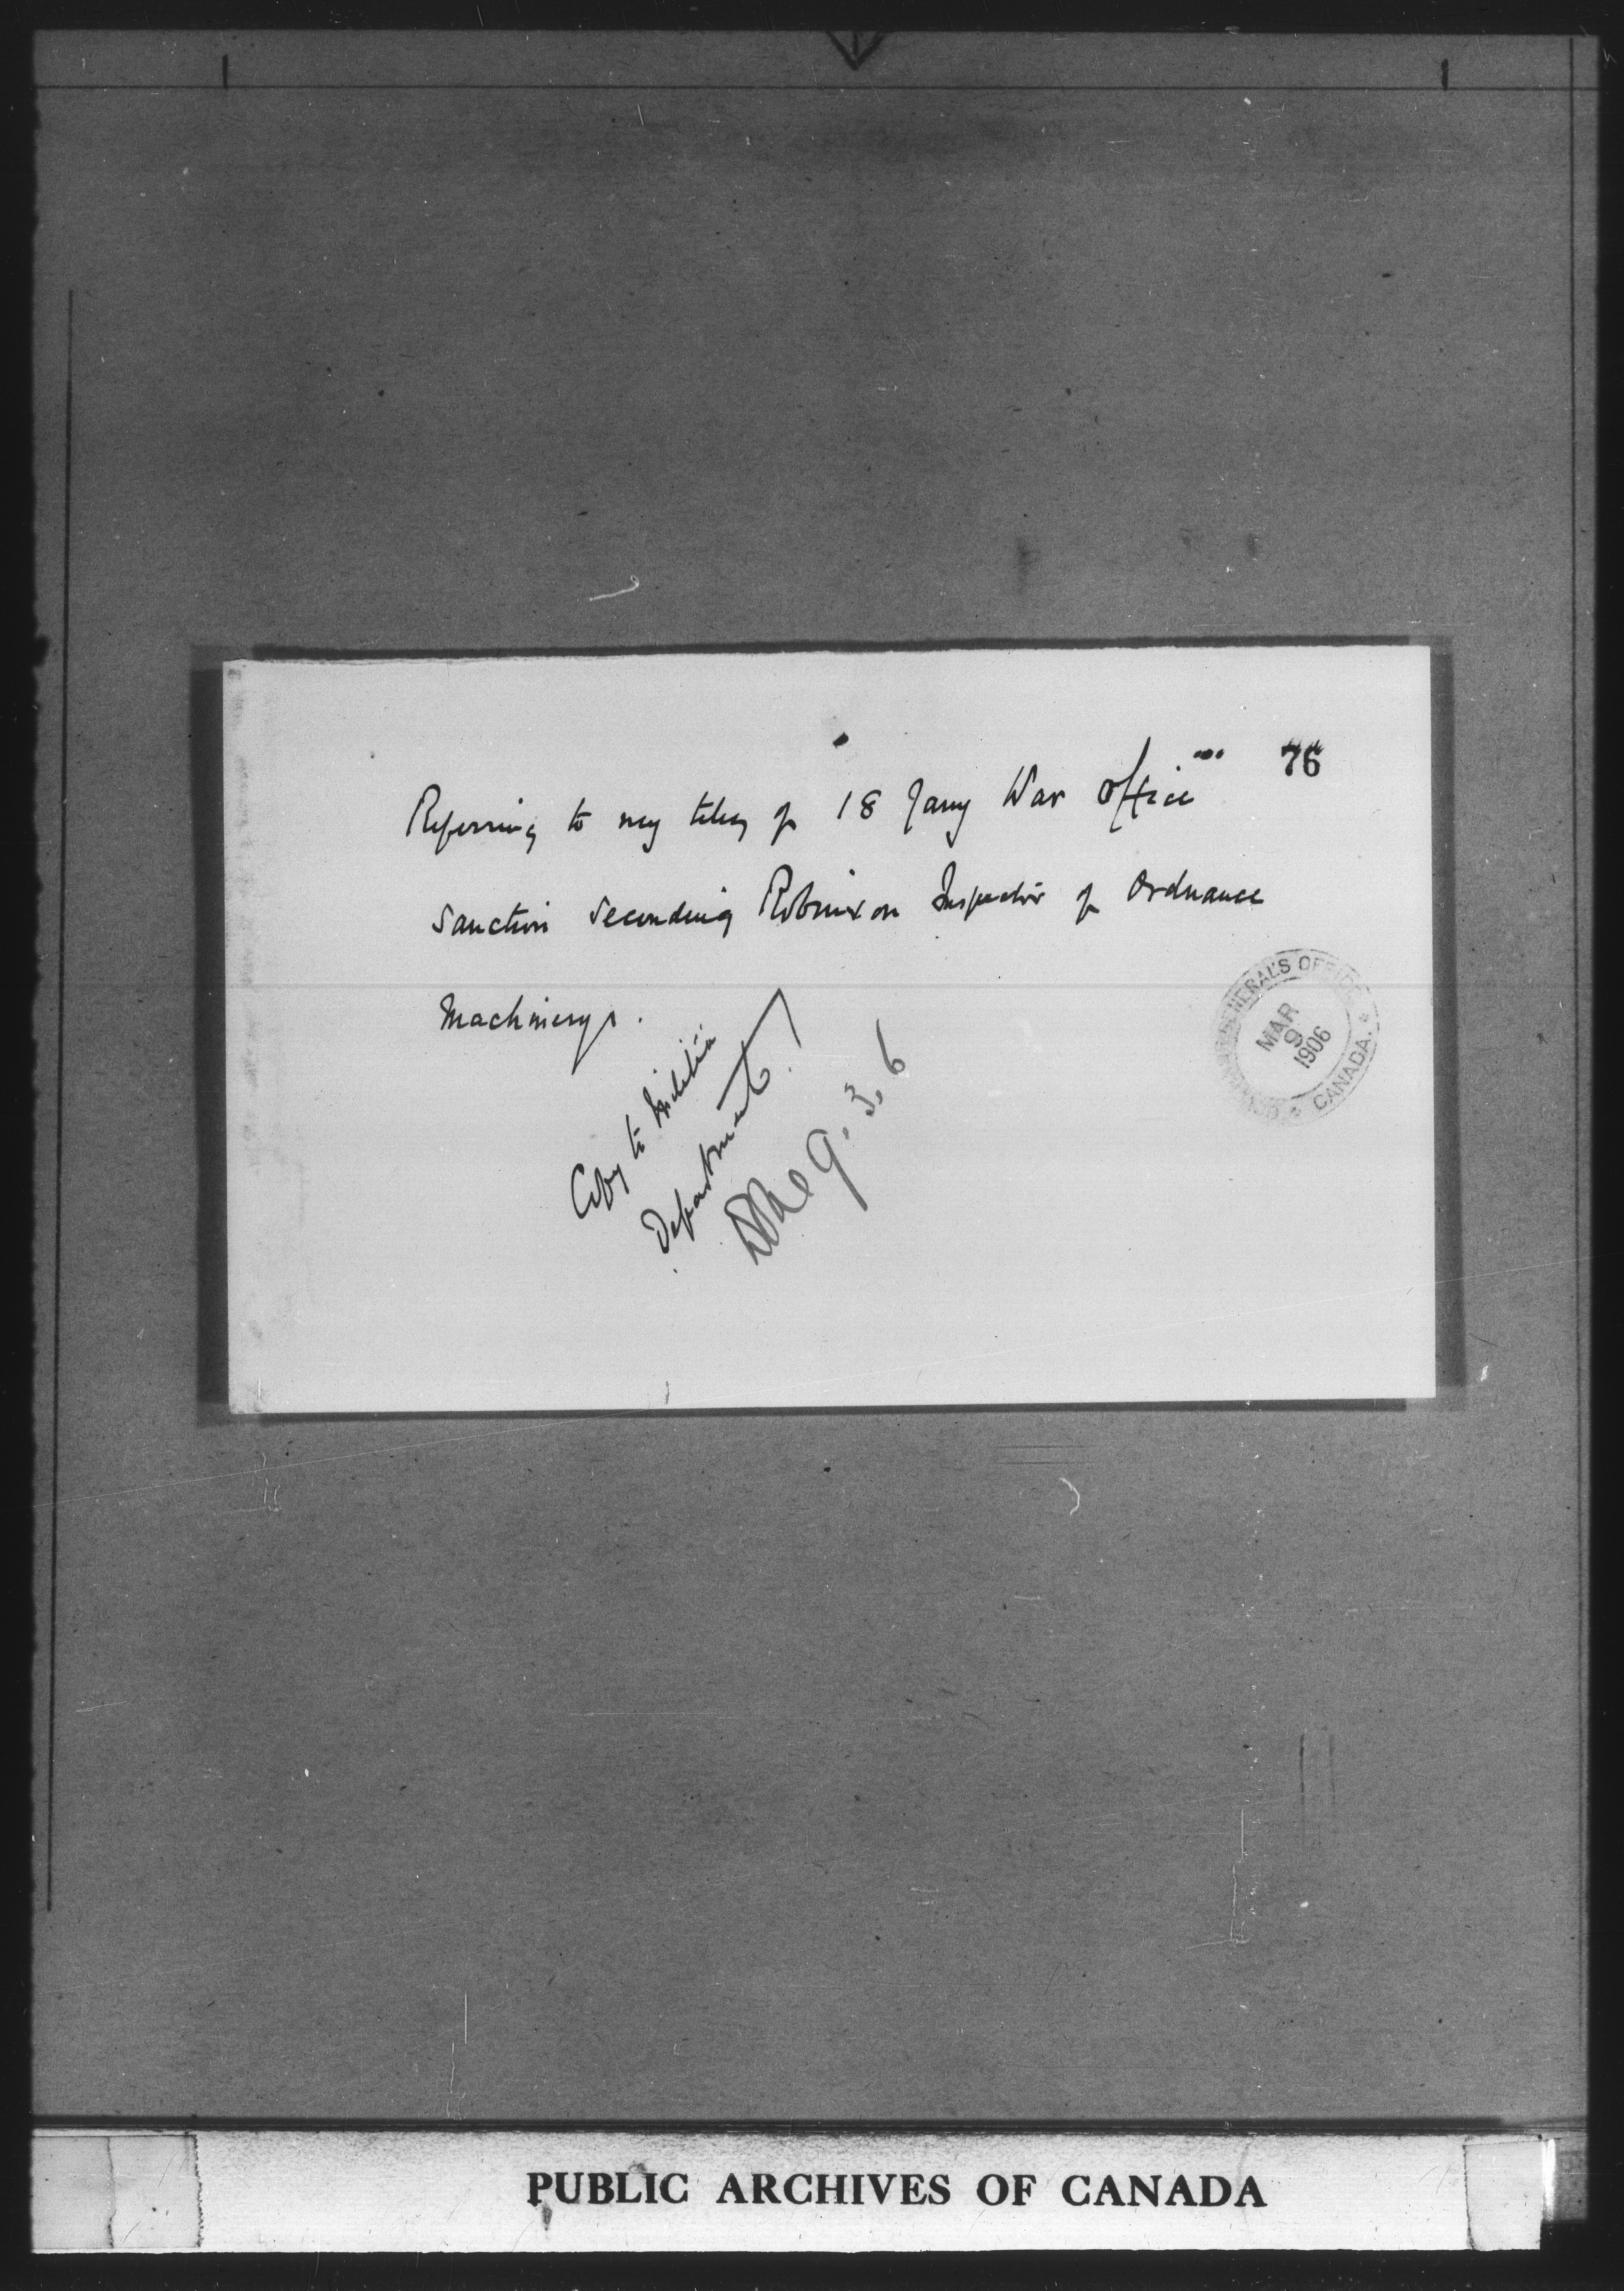 76
Referring to my teleg of 18 Jany War Office
sanction seconding Robinson Inspector of Ordnance
Machinery.
Copy to Militia
Department.
9. 3. 6
GENERAL'S OFFICE
MAR
9
1906
CANADA.
PUBLIC ARCHIVES OF CANADA